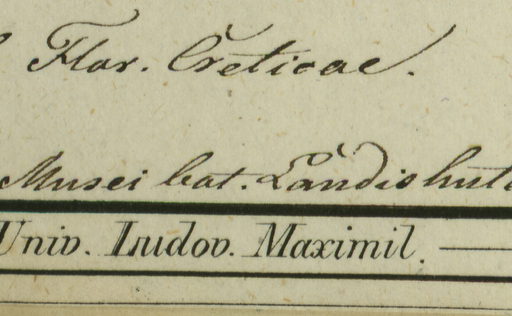 Flor. Creticae.
Musei bot. Landishut
Univ. Ludov. Maximil.